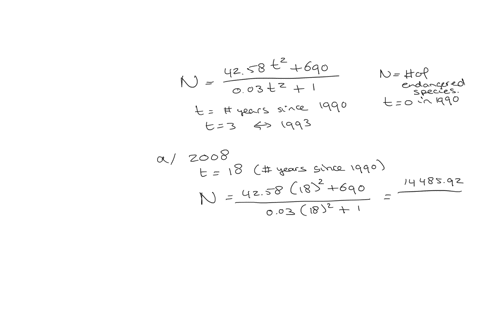 N = (42.58 t² + 690) / (0.03 t² + 1)
N = # of
endangered
species.
t = 0 in 1990
t = # years since 1990
t = 3 ↔ 1993
a/ 2008
t = 18 (# years since 1990)
N = (42.58 (18)² + 690) / (0.03 (18)² + 1) = 14485.92